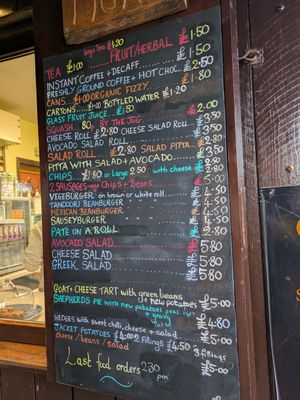 large tea £1.20
TEA £1.00 FRUIT/HERBAL £1.50
INSTANT COFFEE + DECAFF £1.50
FRESHLY GROUND COFFEE + HOT CHOC £2.50
CANS £1.00 ORGANIC FIZZY £1.80
CARTONS £1.00 BOTTLED WATER £1.20
GLASS FRUIT JUICE £1.50
SQUASH 80p BY THE JUG £2.00
CHEESE ROLL £2.80 CHEESE SALAD ROLL £3.50
AVOCADO SALAD ROLL £3.50
SALAD ROLL £2.80 SALAD PITTA
PITTA WITH SALAD + AVOCADO
CHIPS £1.80 or Large 2.50 with cheese
2 SAUSAGES vege Chips + beans
VEGEBURGER on brown or white roll
TANDOORI BEANBURGER
MEXICAN BEANBURGER £4.50
SAUSEYBURGER £4.50
PATE ON A ROLL
AVOCADO SALAD £5.80
CHEESE SALAD £5.80
GREEK SALAD £5.80
GOATS CHEESE TART with green beans
+ new potatoes £5.00
SHEPHERDS PIE with new potatoes peas
+ gravy £5.00
WEDGES with sweet chilli, cheese + salad £4.80
JACKET POTATOES £4.00 2 Fillings £4.50 3 fillings £5.00
cheese / beans / salad
Last food orders 2:30 pm